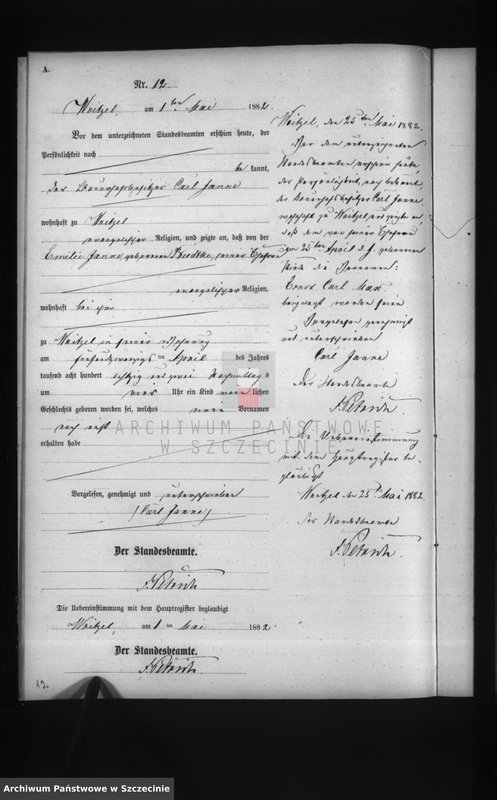 A.
Nr. 12.
Woitzel, am 1ten Mai 1882.
Vor dem unterzeichneten Standesbeamten erschien heute, der
Persönlichkeit nach
be kannt,
der Bauerhofsbesitzer Carl Janne
wohnhaft zu Woitzel
evangelischer Religion, und zeigte an, daß von der
Emilie Janne, geborenen seiner Ehefrau
evangelischer Religion,
wohnhaft bei ihm
zu Woitzel in seiner Wohnung
am fünfundzwanzigsten April des Jahres
tausend acht hundert achtzig und zwei Nachmittags
um vier Uhr ein Kind männlichen
Geschlechts geboren worden sei, welches einen Vornamen
noch nicht
erhalten habe
Vorgelesen, genehmigt und unterschrieben
(Carl Janne)
Der Standesbeamte.
Die Uebereinstimmung mit dem Hauptregister beglaubigt
Woitzel, am 1ten Mai 1882.
Der Standesbeamte.
12.
Woitzel, den 25ten Mai 1882.
Vor dem unterzeichneten
Standesbeamten, erschien heute,
der Persönlichkeit nach bekannt,
der Bauerhofsbesitzer Carl Janne,
wohnhaft zu Woitzel, und zeigte an
daß dem von seiner Ehefrau
am 25ten April d. J. geborenen
Kinde die Vornamen:
Ernst Carl Max
beigelegt worden seien
Vorgelesen genehmigt
und unterschrieben
Carl Janne
Der Standesbeamte
Die Uebereinstimmung
mit dem Hauptregister be-
glaubigt
Woitzel den 25ten Mai 1882.
Der Standesbeamte
ARCHIWUM PAŃSTWOWE
W SZCZECINIE
Archiwum Państwowe w Szczecinie